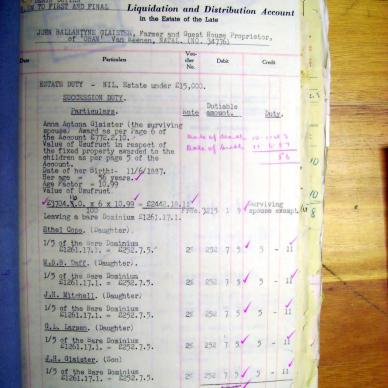 TO FIRST AND FINAL Liquidation and Distribution Account
in the Estate of the Late
JOHN BALLANTYNE GLAISTER, Farmer and Guest House Proprietor,
of "OBAN" Van Reenen, NATAL. (NO. 34776)
Date Particulars Voucher No. Debit Credit
ESTATE DUTY - NIL. Estate under £15,000.
SUCCESSION DUTY.
Particulars. Rate Dutiable amount. Duty.
Anna Antona Glaister (the surviving
spouse) Award as per Page 6 of
the Account £772.8.10.
Value of Usufruct in respect of
the fixed property awarded to the
children as per page 5 of the
Account.
Date of her Birth:- 11/6/1887.
Her age = 56 years.
Age Factor = 10.99
Value of Usufruct
x 6 x 10.99 = £2442.18.11
100 3215 1 9 surviving
Leaving a bare Dominium £1261.17.1. spouse exempt.
Ethel Cope. (Daughter).
1/5 of the Bare Dominium
£1261.17.1. = £252.7.5. 2% 252 7 5 5 - 11
(Daughter)
1/5 of the Bare Dominium
£1261.17.1. = £252.7.5. 2% 252 7 5 5 - 11
J.H. Mitchell. (Daughter)
1/5 of the Bare Dominium
£1261.17.1. = £252.7.5. 2% 252 7 5 5 - 11
G.L. Larsen. (Daughter)
1/5 of the Bare Dominium
£1261.17.1. = £252.7.5. 2% 252 7 5 5 - 11
J.H. Glaister. (Son)
1/5 of the Bare Dominium
£1261.17.1. = £252.7.5. 2% 252 7 5 5 - 11